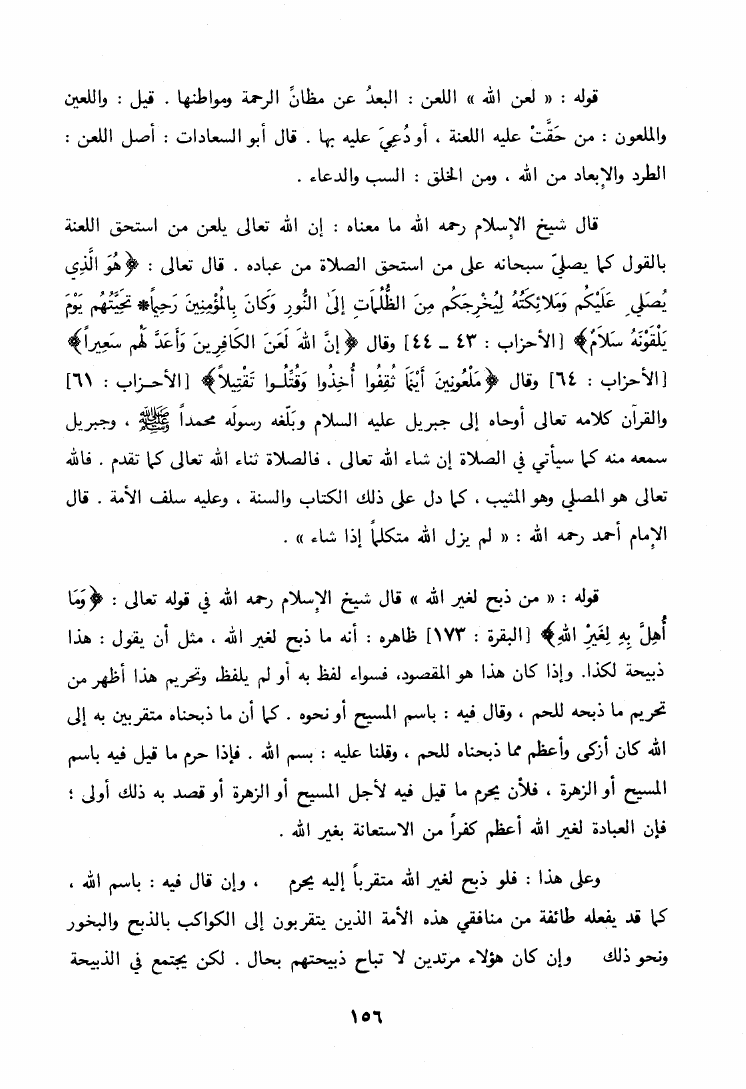 قوله : « لعن الله » اللعن : البعدُ عن مظانِّ الرحمة ومواطنها . قيل : واللعين
والملعون : من حَقَّتْ عليه اللعنة ، أو دُعِيَ عليه بها . قال أبو السعادات : أصل اللعن :
الطرد والإبعاد من الله ، ومن الخلق : السب والدعاء .
قال شيخ الإسلام رحمه الله ما معناه : إن الله تعالى يلعن من استحق اللعنة
بالقول كما يصليّ سبحانه على من استحق الصلاة من عباده . قال تعالى : ﴿هُوَ الَّذِي
يُصَلِي عَلَيْكُم وَمَلائِكتُهُ لِيُخْرِجَكُم مِنَ الظُّلُمَاتِ إلىَ النُّورِ وَكَانَ بِالمُؤْمِنِينَ رَحِيماً* تحَيَّتُهُم يَوْمَ
يَلْقَوْنَهُ سَلَامٌ﴾ [الأحزاب : ٤٣ ـ ٤٤] وقال ﴿إنَّ اللهَ لَعَنَ الكَافِرِينَ وَأَعَدَّ لَهُم سَعِيراً﴾
[الأحزاب : ٦٤] وقال ﴿مَلْعُونِينَ أَيْنَمَا ثُقِفُوا أُخِذُوا وَقُتِّلُـوا تَقْتِيلاً﴾ [الأحـزاب : ٦١]
والقرآن كلامه تعالى أوحاه إلى جبريل عليه السلام وبَلّغه رسولَه محمداً ﷺ ، وجبريل
سمعه منه كما سيأتي في الصلاة إن شاء الله تعالى ، فالصلاة ثناء الله تعالى كما تقدم . فالله
تعالى هو المصلي وهو المثيب ، كما دل على ذلك الكتاب والسنة ، وعليه سلف الأمة . قال
الإمام أحمد رحمه الله : « لم يزل الله متكلماً إذا شاء » .
قوله : « من ذبح لغير الله » قال شيخ الإسلام رحمه الله في قوله تعالى : ﴿وَمَا
أُهِلَّ بِهِ لِغَيْرِ اللهِ﴾ [البقرة : ١٧٣] ظاهره : أنه ما ذبح لغير الله ، مثل أن يقول : هذا
ذبيحة لكذا. وإذا كان هذا هو المقصود، فسواء لفظ به أو لم يلفظ، وتحريم هذا أظهر من
تحريم ما ذبحه للحم ، وقال فيه : باسم المسيح أو نحوه . كما أن ما ذبحناه متقربين به إلى
الله كان أزكى وأعظم مما ذبحناه للحم ، وقلنا عليه : بسم الله . فإذا حرم ما قيل فيه باسم
المسيح أو الزهرة ، فلأن يحرم ما قيل فيه لأجل المسيح أو الزهرة أو قصد به ذلك أولى ؛
فإن العبادة لغير الله أعظم كفراً من الاستعانة بغير الله .
وعلى هذا : فلو ذبح لغير الله متقرباً إليه يحرم ، وإن قال فيه : باسم الله ،
كما قد يفعله طائفة من منافقي هذه الأمة الذين يتقربون إلى الكواكب بالذبح والبخور
ونحو ذلك وإن كان هؤلاء مرتدين لا تباح ذبيحتهم بحال . لكن يجتمع في الذبيحة
١٥٦